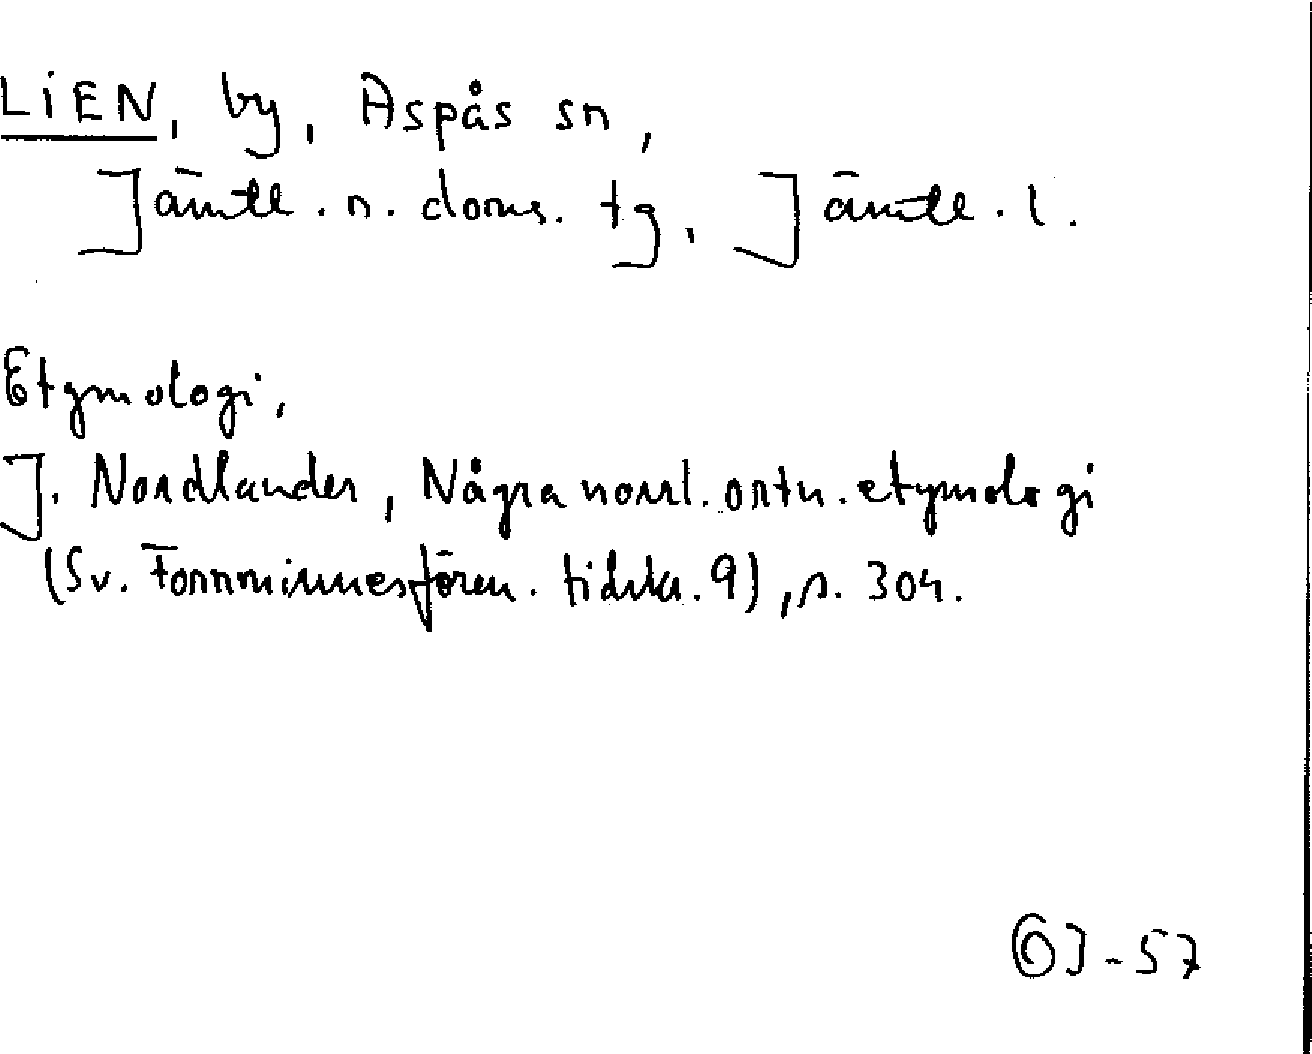 LIEN, by, Aspås sn,
Jämtl. n. doms. tg, Jämtl. l.
Etymologi,
J. Nordlander, Några norrl. ortn. etymologi
(Sv. Fornminnesfören. tidskr. 9), s. 304.